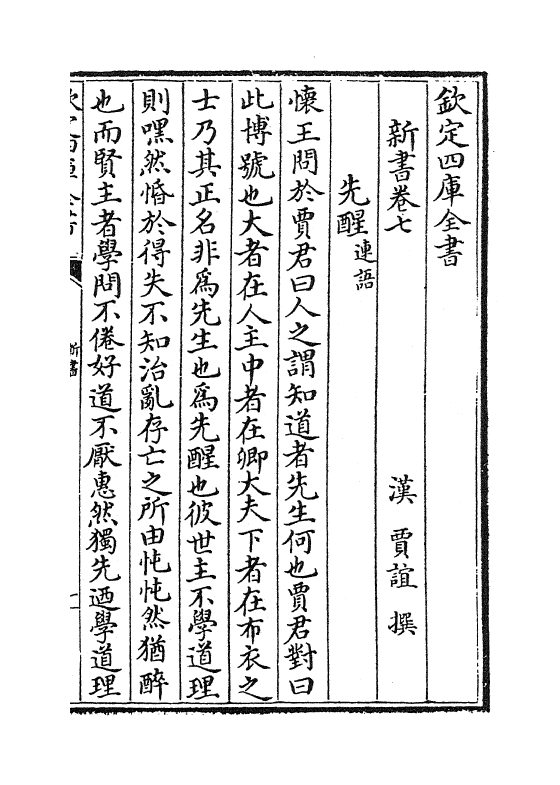 欽定四庫全書
新書卷七 漢 賈誼 撰
先醒連語
懷王問於賈君曰人之謂知道者先生何也賈君對曰
此博號也大者在人主中者在卿大夫下者在布衣之
士乃其正名非爲先生也爲先醒也彼世主不學道理
則嘿然惛於得失不知治亂存亡之所由忳忳然猶醉
也而賢主者學問不倦好道不厭惠然獨先迺學道理
新書